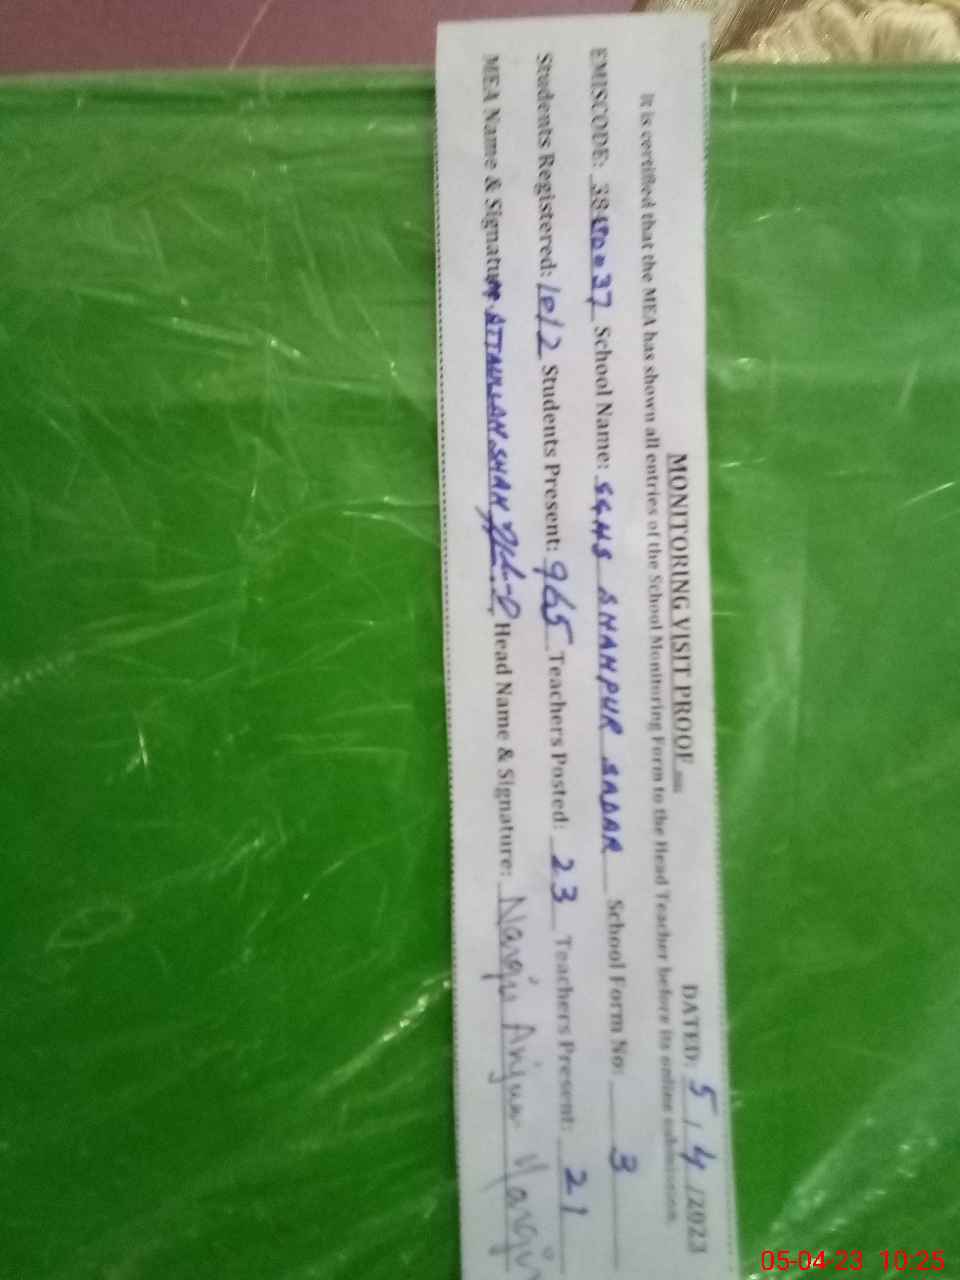 MONITORING VISIT PROOF
DATED: 5/4/2023
It is certified that the MEA has shown all entries of the School Monitoring Form to the Head Teacher before its online submission.
EMISCODE: School Name: GGHS SHAHPUR SADAR School Form No: 3
Students Registered: 1012 Students Present: 965 Teachers Posted: 23 Teachers Present: 21
MEA Name & Signature ATTAULLAH SHAH Head Name & Signature: Anjum
05-04-23 10:25